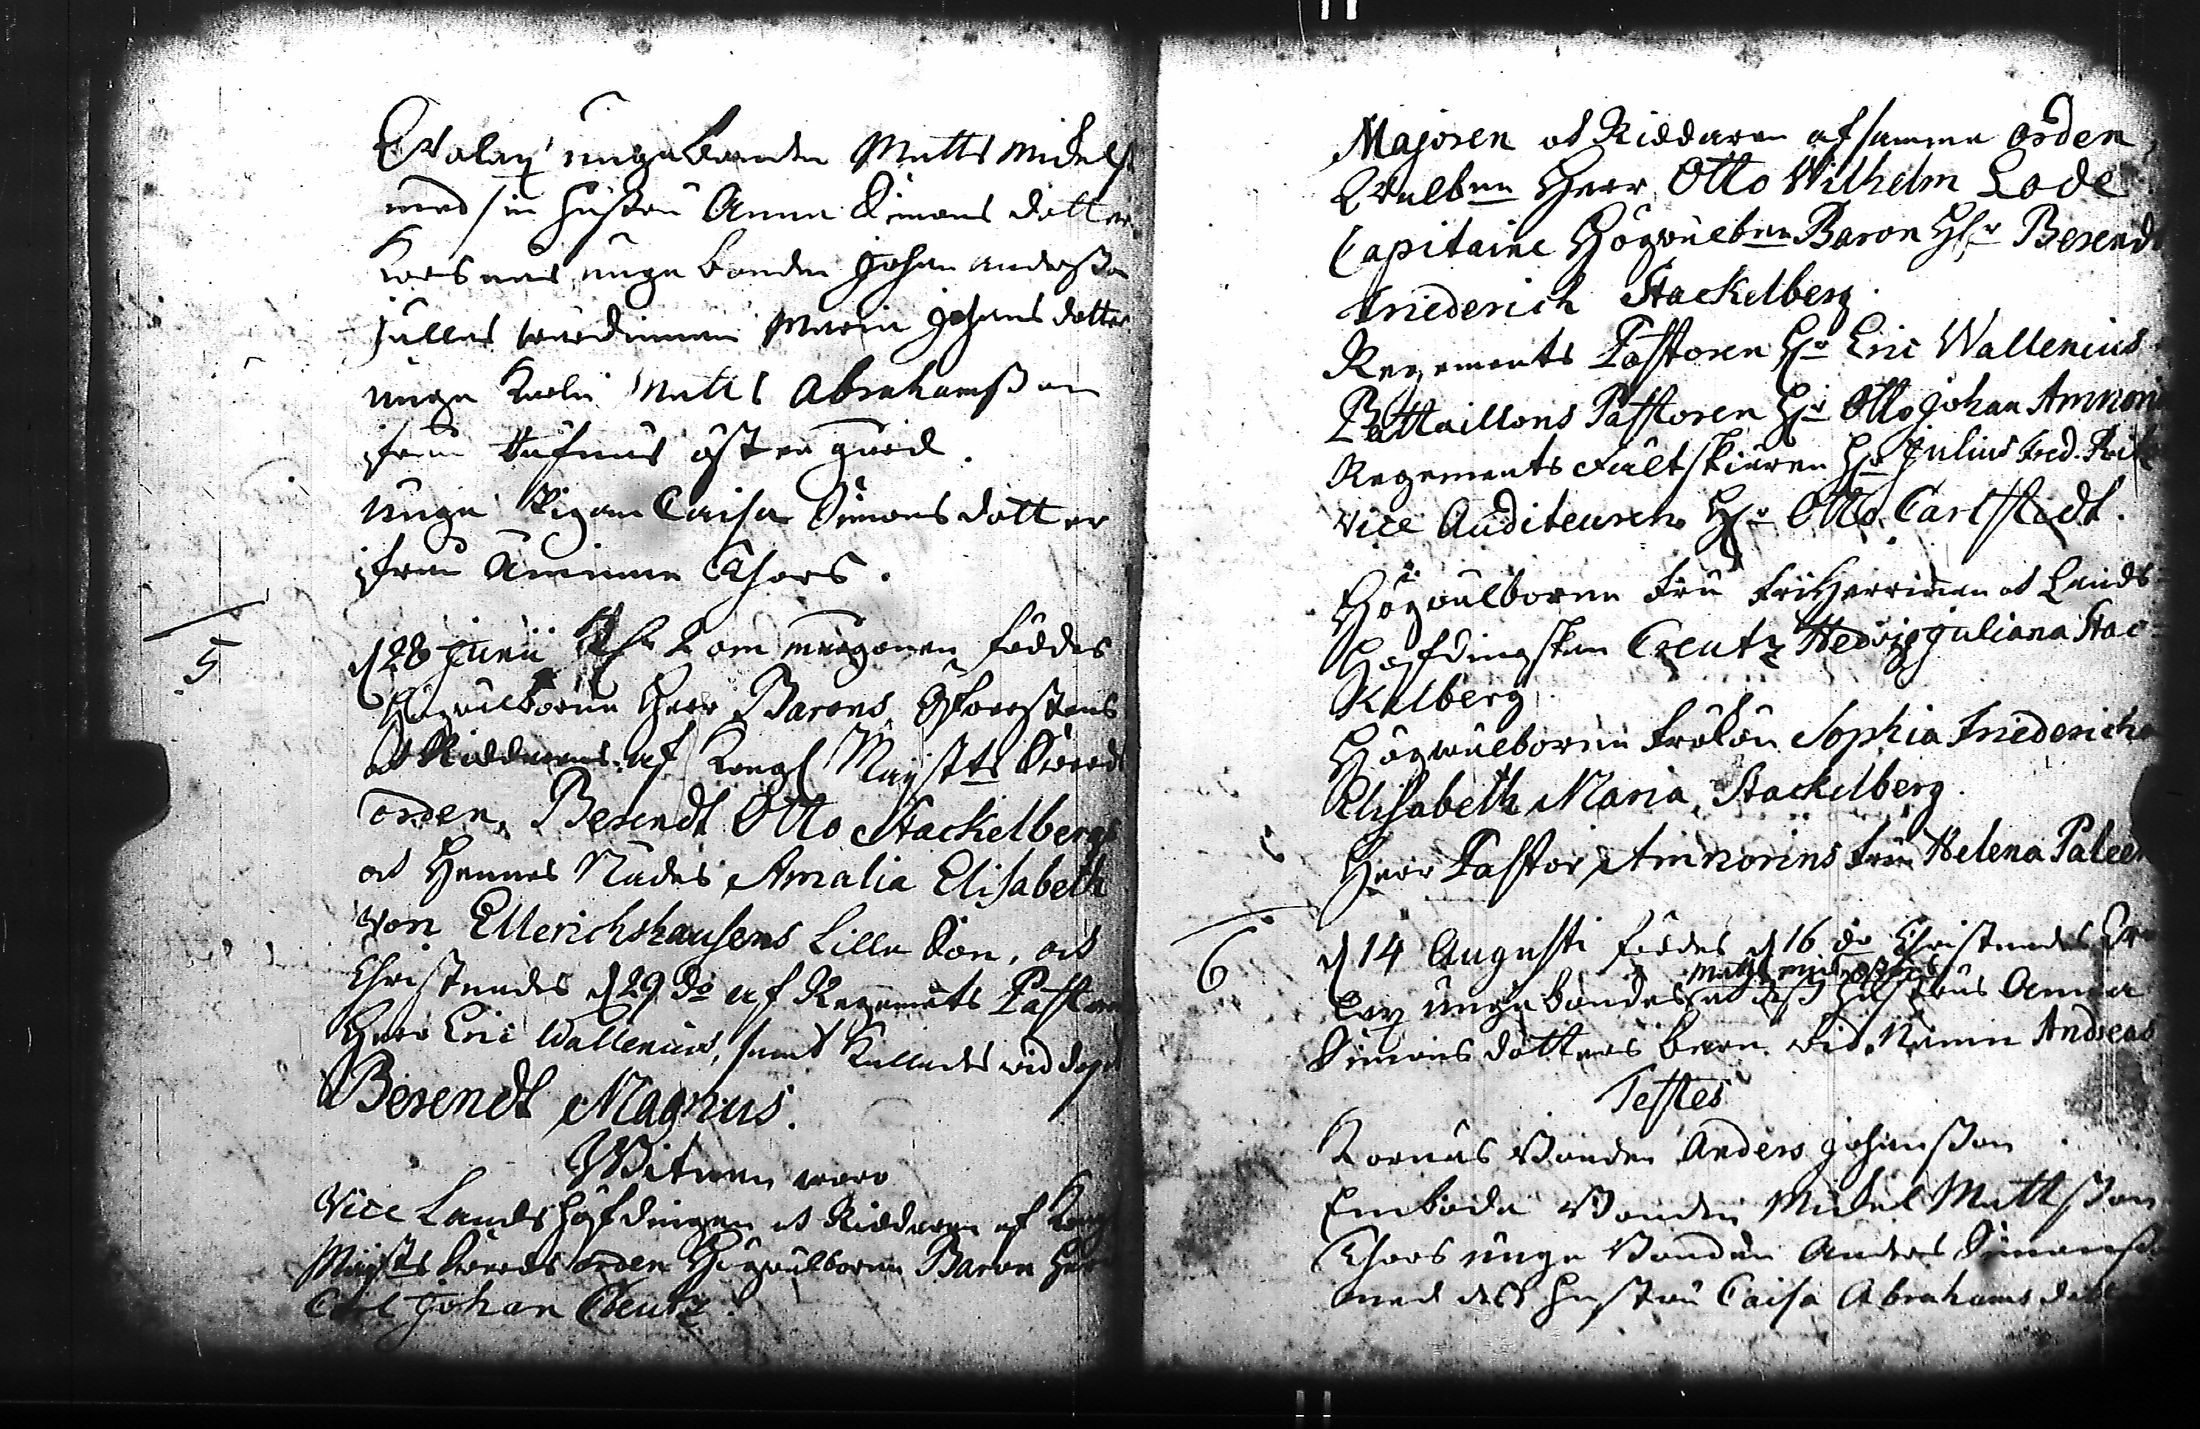 unga bonden Matts Mickelss
med sin hustru Anna Simons dotter
unga bonden Johan Andersson
wärdinnan Maria Johans dotter
unga Karlen Matts Abrahamsson
från öster gård.
unga Pigan Caisa Simons dotter
från
5
d 28 Junii Kl. 2 om morgonen föddes
Högwälborne Herr Barons Öfwerstens
och Riddarens af Kongl Mayts Swerds
orden, Berendt Otto Stackelbergs
och Hennes Nådes Amalia Elisabeth
von Ellerichshausens Lilla Son, och
Christnades d 29 do af Regements Pastoren
Herr Eric Wallenius, samt Kallades wid dopet
Berendt Magnus.
Witnen woro
Vice Landshöfdingen och Riddaren af Kongl
Mayts swerds orden Högwälborne Baron Herr
Carl Johan Creutz.
Majoren och Riddaren af samma orden,
Wälbne Herr Otto Wilhelm Lode
Capitaine Högwälbne Baron Hr Berendt
Friederich Stackelberg.
Regements Pastoren Hr Eric Wallenius.
Battaillons Pastoren Hr Otto Johan Amnorin
Regements Fältskiären Hr Julius Fred.
Vice Auditeuren Hr Otto Carlstedt.
Högwälborna Fru Friherrinnan och Lands-
höfdingskan Creutz Hedvig Juliana Stac-
kelberg
Högwälborna Fröken Sophia Friedericha
Elisabeth Maria Stackelberg.
Herr Pastor Amnorins Fru Helena
6
d 14 Augusti föddes d 16 do Christnades
unga bondes Matts hustrus Anna
Simons dotters barn. wid Namn Andreas
Testes
Bonden Anders Johansson
Emboda Bonden Mickel Mattsson
unga Bonden Anders Simonsson
med dess hustru Caisa Abrahams dotter